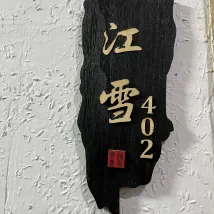 江雪
402